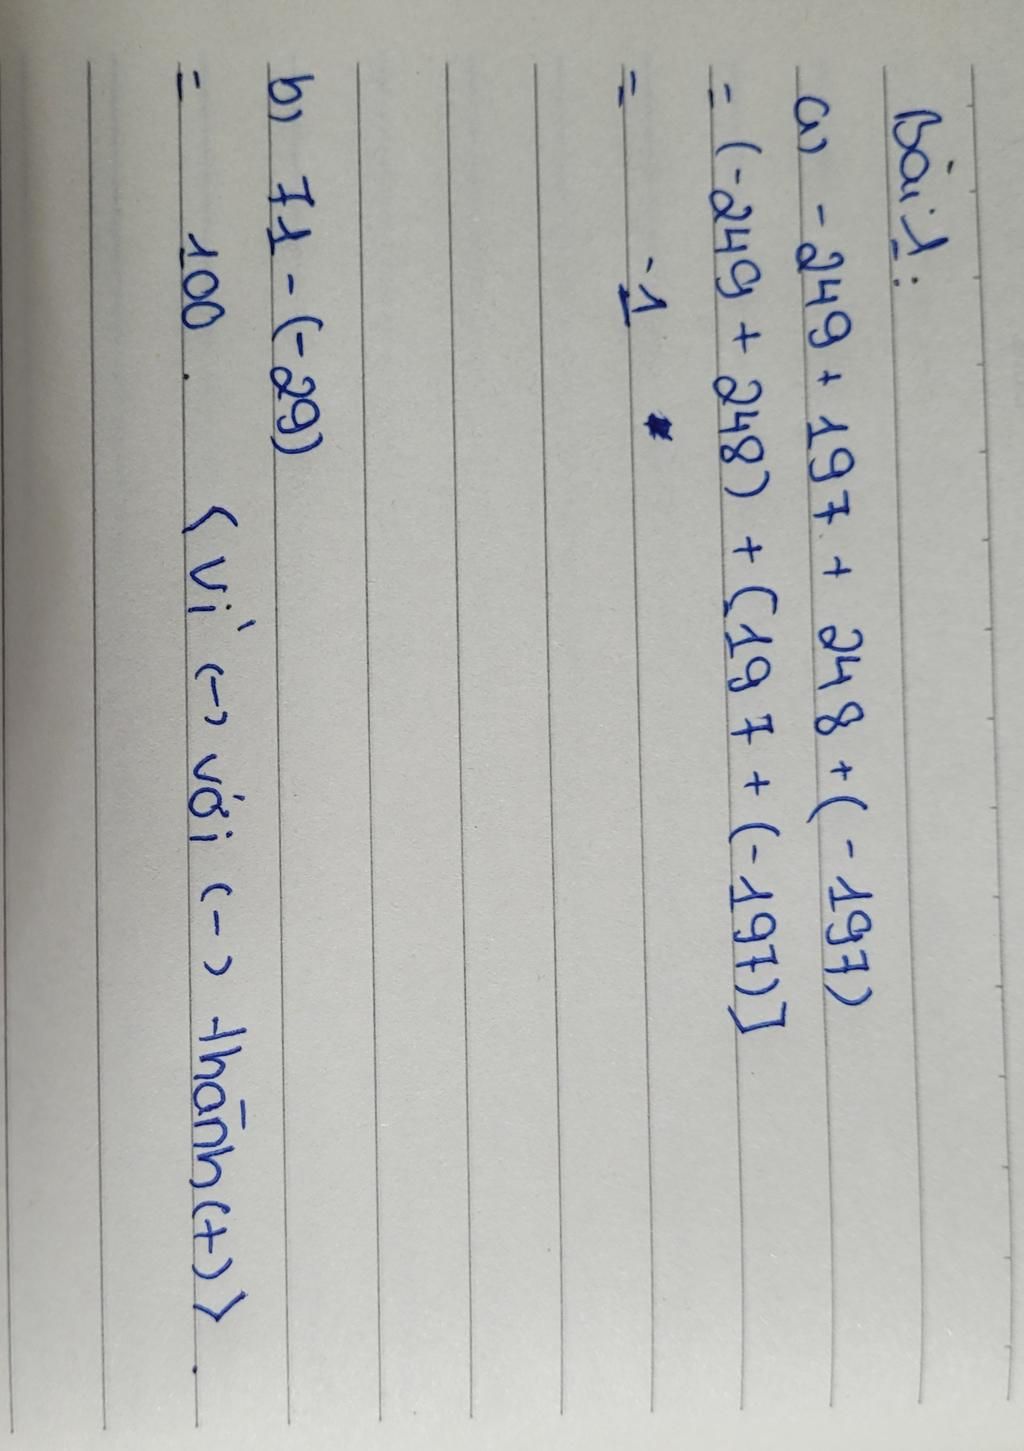 Bài 1:
a) - 249 + 197 + 248 + (-197)
= (-249 + 248) + [197 + (-197)]
= -1
b) 71 - (-29)
= 100. (Vì (-) với (-) thành (+)).